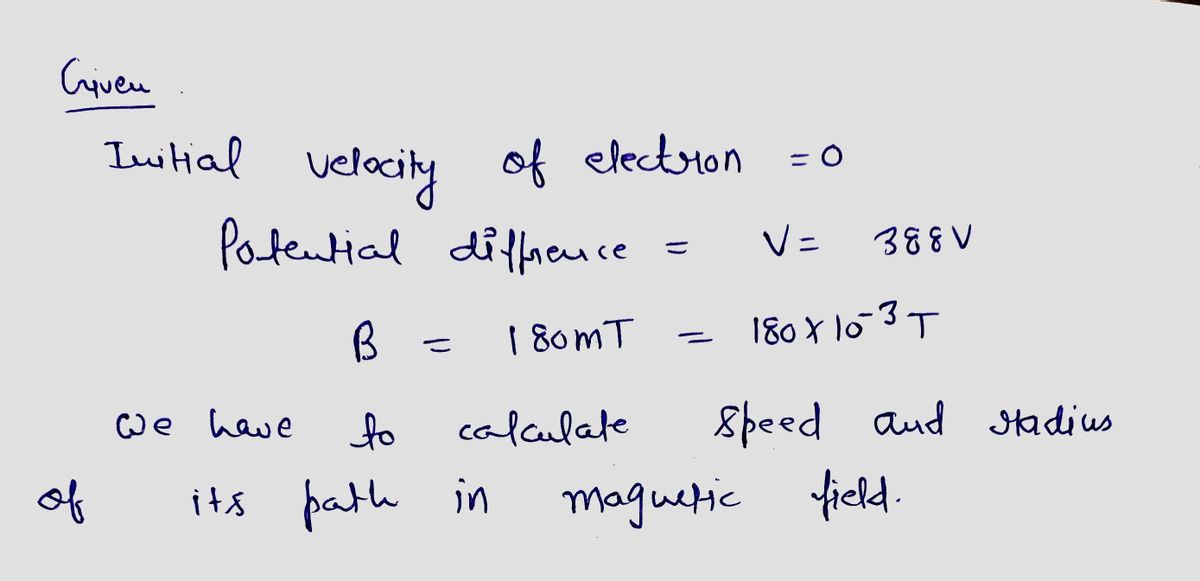 Given
Initial velocity of electron = 0
Potential diffrence = V = 388V
B = 180mT = 180 X 10⁻³ T
we have to calculate speed and radius
of its path in magnetic field.